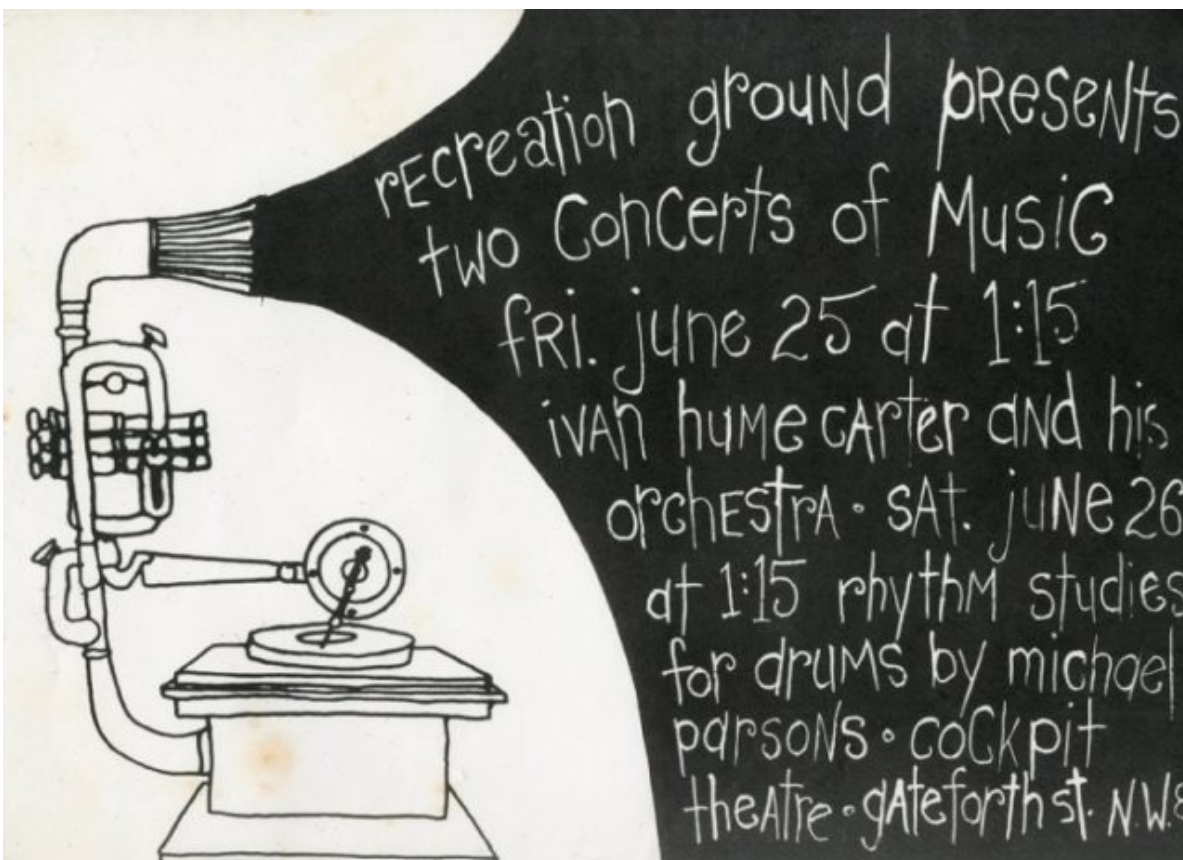 rEcreation grouNd pResents
two ConCerts of MusiC
fRi. june 25 at 1:15
iVAn huMe cArter aNd his
orchEstrA · SAt. juNe 26
at 1:15 rhythM studies
for druMS by michael
parsoNs · coCkpit
theAtre · gAteforth st. N.W.8